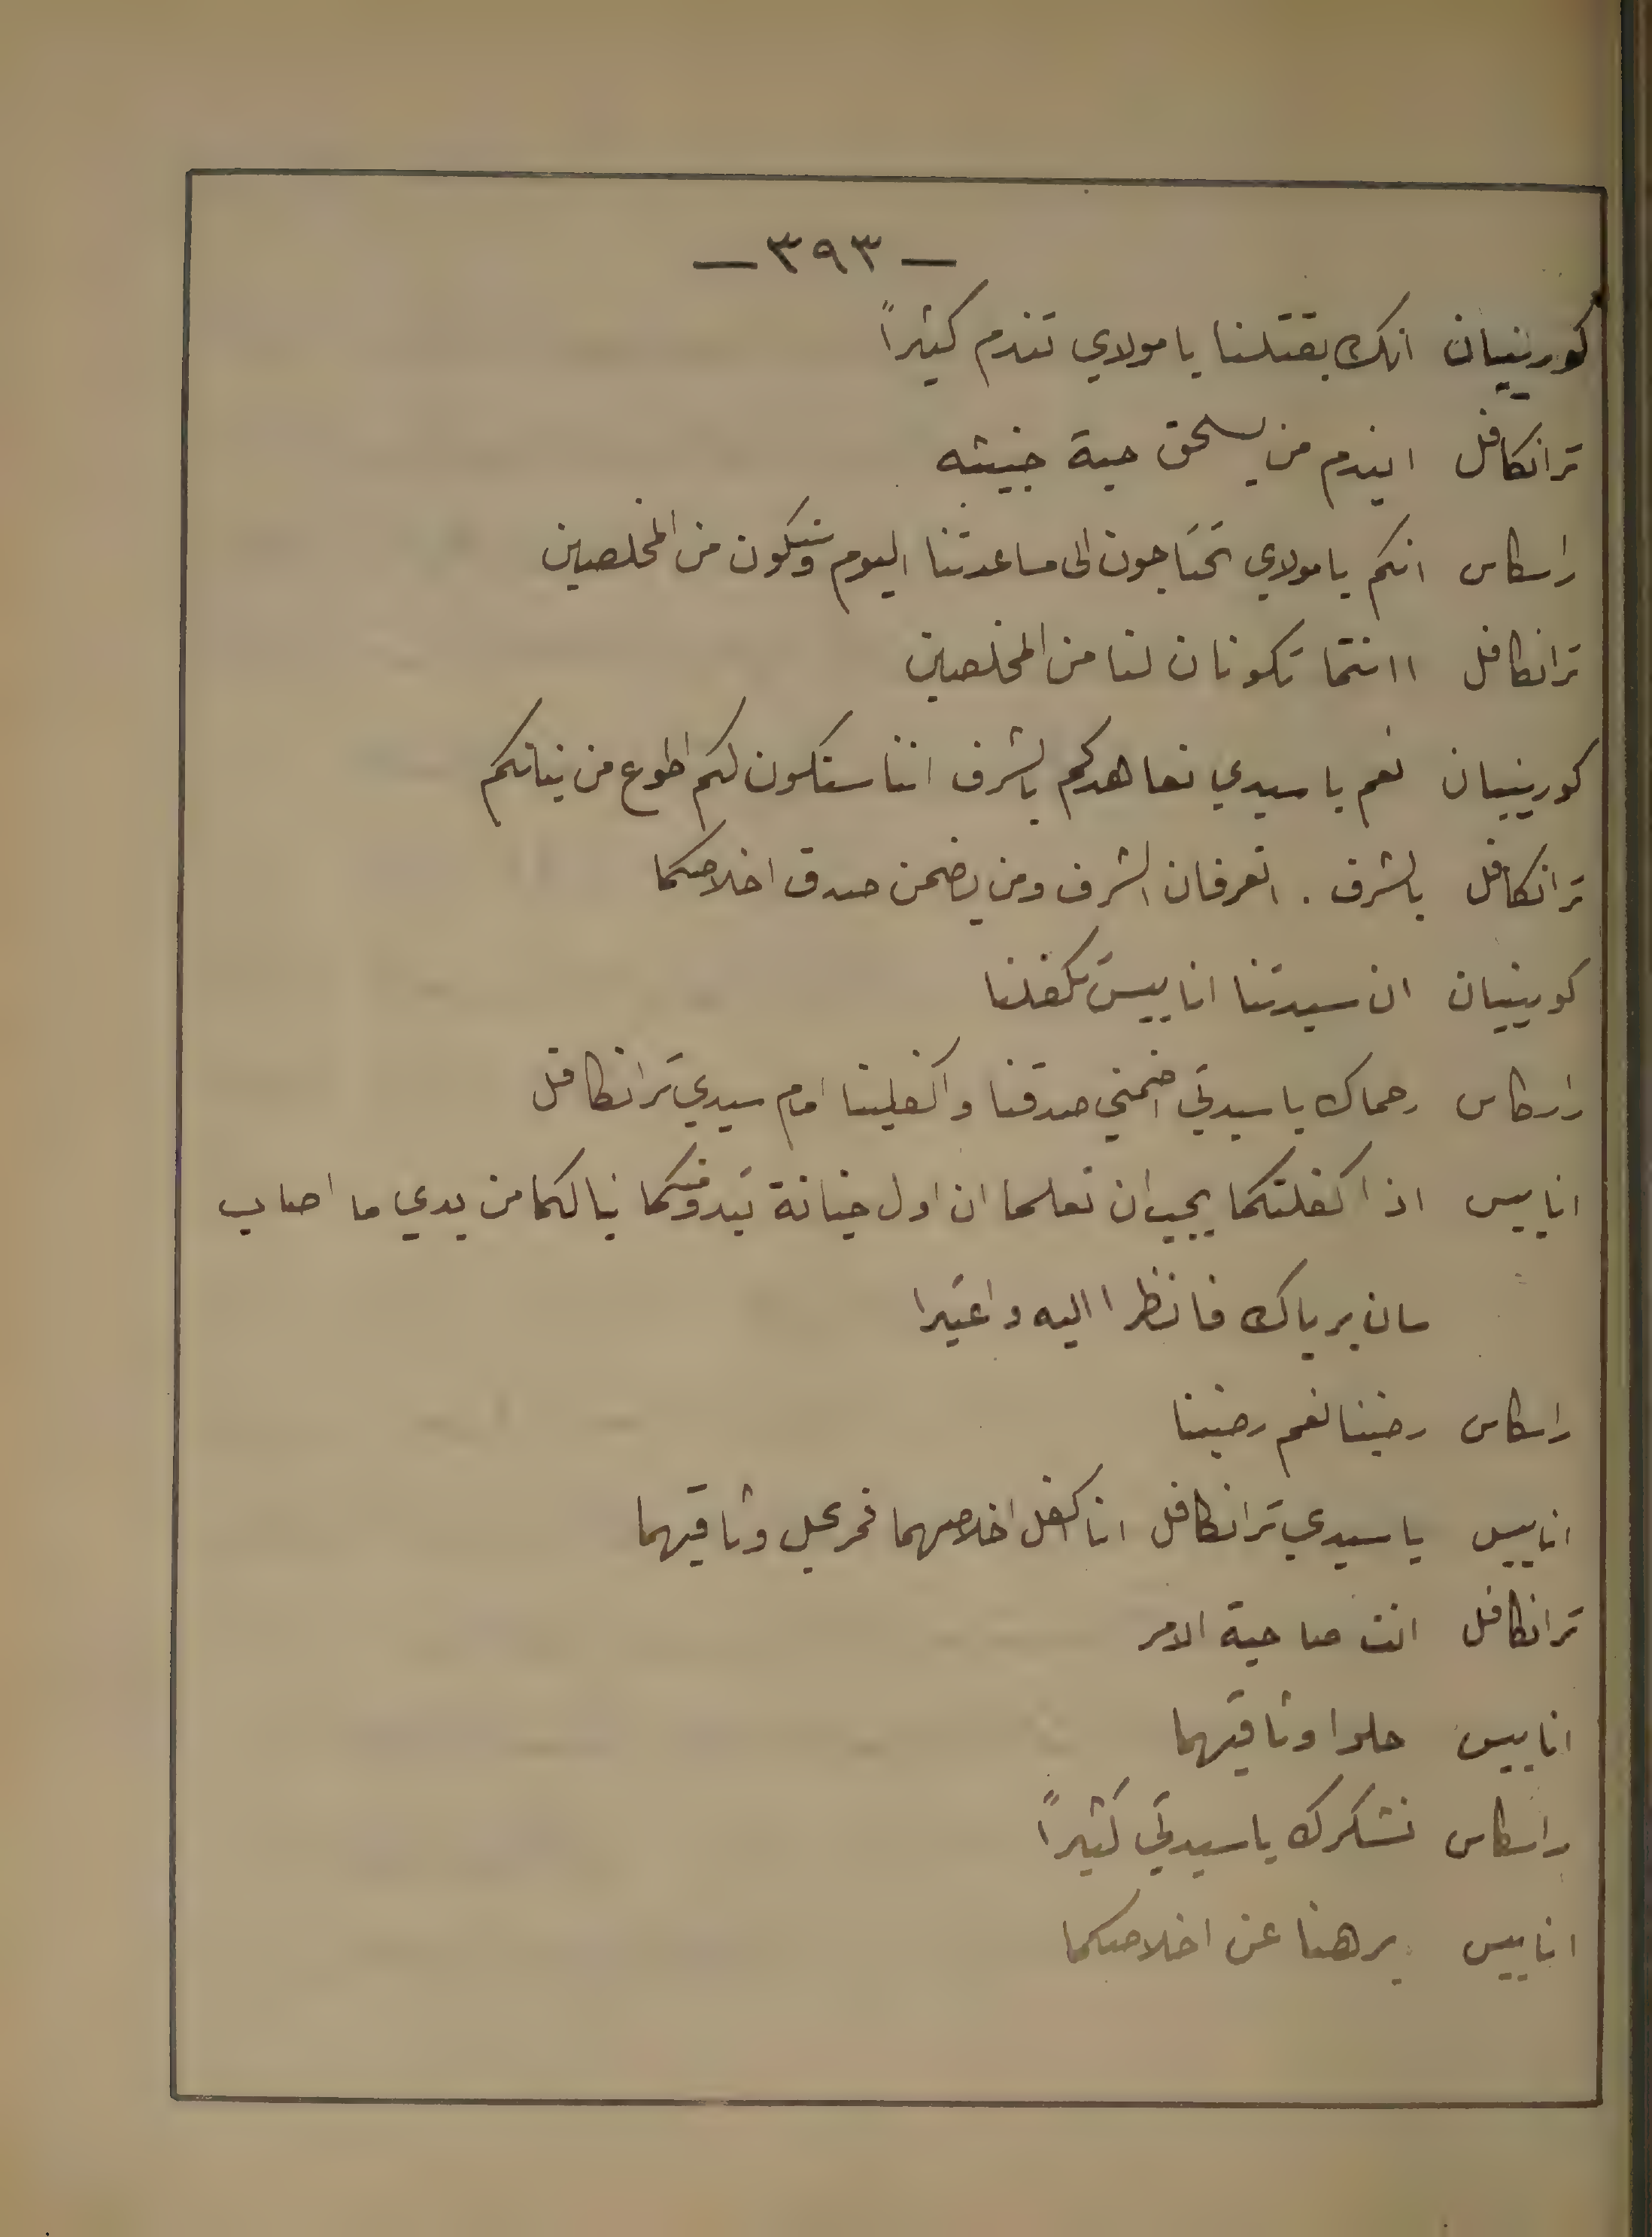 — ٣٩٣ —
كورينيان انك بقتلنا يا مولاي تندم كثيراً
ترانكافل ايندم من يسحق حية خبيثه
راسكاس انكم يا مولاي تحتاجون الى مساعدتنا اليوم وسنكون من المخلصين
ترانكافل اانتما تكونان لنا من المخلصين
كورينيان نعم يا سيدي نعاهدكم بالشرف اننا سنكون لكم اطوع من بنانكم
ترانكافل بالشرف . اتعرفان الشرف ومن يضمن صدق اخلاصكما
كورينيان ان سيدتنا اناييس تكفلنا
راسكاس رحماك يا سيدتي اضمني صدقنا واكفلينا امام سيدي ترانكافل
اناييس اذا كفلتكما يجب ان تعلما ان اول خيانة تبدو منكما ينالكما من يدي ما اصاب
سان برياك فانظرا اليه واعتبرا
راسكاس رضينا نعم رضينا
اناييس يا سيدي ترانكافل انا اكفل اخلاصهما فمر بحل وثاقيهما
ترانكافل انت صاحبة الامر
اناييس حلوا وثاقيهما
راسكاس نشكرك يا سيدتي كثيراً
اناييس برهنا عن اخلاصكما